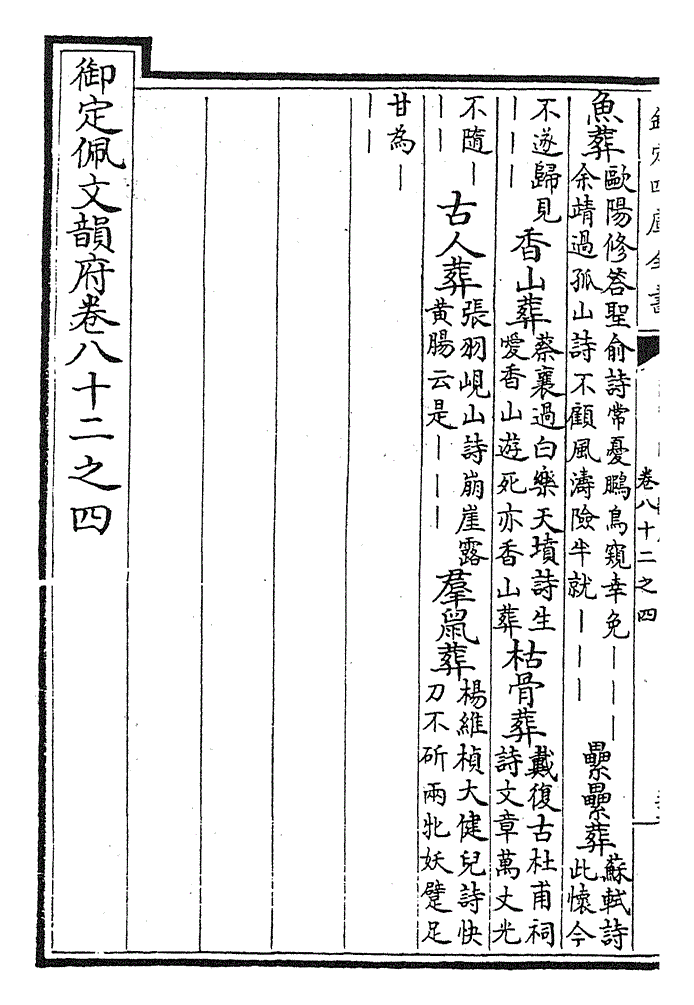 欽定四庫全書 卷八十二之四
魚葬 歐陽修答聖俞詩常憂鵩鳥窺幸免丨丨丨 余靖過孤山詩不顧風濤險牛就丨丨丨 纍纍葬 蘇軾詩 此懷今
不遂歸見 丨丨丨 香山葬 蔡襄過白樂天墳詩生 愛香山遊死亦香山葬 枯骨葬 戴復古杜甫祠 詩文章萬丈光
不隨丨 丨丨 古人葬 張羽峴山詩崩崖露 黄腸云是丨丨丨 羣鼠葬 楊維楨大健兒詩快 刀不斫兩牝妖躄足
甘為丨 丨丨
御定佩文韻府卷八十二之四